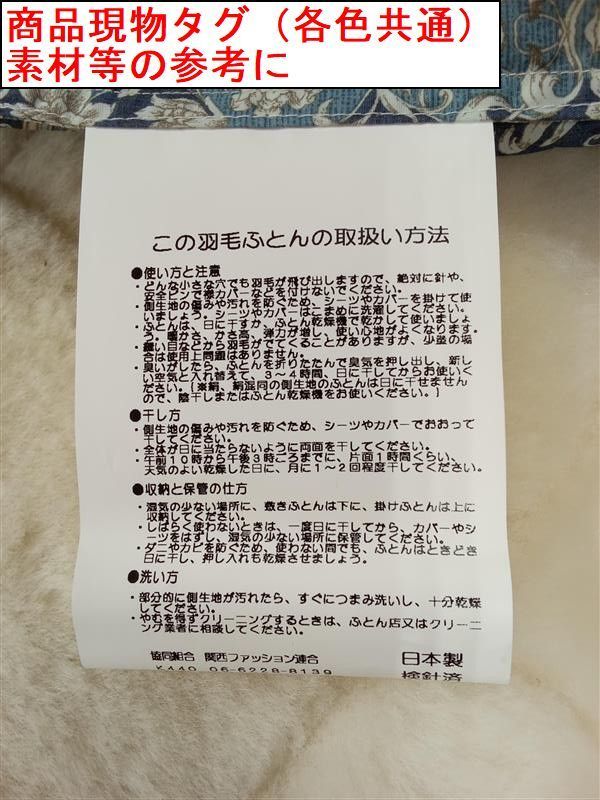 商品現物タグ（各色共通）
素材等の参考に
この羽毛ふとんの取扱い方法
●使い方と注意
・どんな小さな穴でも羽毛が飛び出しますので、絶対に針や、
安全ピンで襟カバーなどを付けないでください。
・側生地の傷みや汚れを防ぐため、シーツやカバーを掛けて使
いましょう。シーツやカバーはこまめに洗濯してください。
・ふとんは、日に干すか、ふとん乾燥機で乾かして使いましょ
う。暖かさ、かさ高、弾力が増し、使い心地がよくなります。
・縫い目などから羽毛がでてくることがありますが、少量の場
合は使用上問題はありません。
・臭いがしたら、ふとんを折りたたんで臭気を押し出し、新し
い空気と入れ替えて、3〜4時間、日に干してからお使いく
ださい。(※絹、絹混同の側生地のふとんは日に干せません
ので、陰干しまたはふとん乾燥機をお使いください。)
●干し方
・側生地の傷みや汚れを防ぐため、シーツやカバーでおおって
干してください。
・全体が日に当たらないように両面を干してください。
・午前10時から午後3時ころまでに、片面1時間くらい、
天気のよい乾燥した日に、月に1〜2回程度干してください。
●収納と保管の仕方
・湿気の少ない場所に、敷きふとんは下に、掛けふとんは上に
収納してください。
・しばらく使わないときは、一度日に干してから、カバーやシ
ーツをはずし、湿気の少ない場所に保管してください。
・ダニやカビを防ぐため、使わない間でも、ふとんはときどき
日に干し、押し入れも乾燥させましょう。
●洗い方
・部分的に側生地が汚れたら、すぐにつまみ洗いし、十分乾燥
してください。
・やむを得ずクリーニングするときは、ふとん店又はクリーニ
ング業者に相談してください。
協同組合 関西ファッション連合
K440 06-6228-8139
日本製
検針済